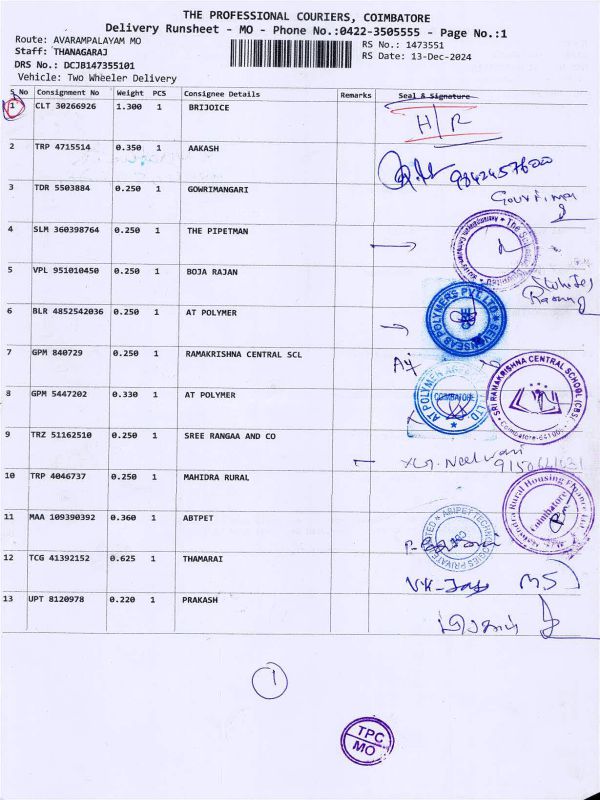 THE PROFESSIONAL COURIERS, COIMBATORE
Delivery Runsheet - MO - Phone No.:0422-3505555 - Page No.:1
Route: AVARAMPALAYAM MO
RS No.: 1473551
Staff: THANAGARAJ
RS Date: 13-Dec-2024
DRS No.: DCJB147355101
Vehicle: Two Wheeler Delivery
S No Consignment No Weight PCS Consignee Details Remarks Seal & Signature
1 CLT 30266926 1.300 1 BRIJOICE H/R
2 TRP 4715514 0.350 1 AAKASH
3 TDR 5503884 0.250 1 GOWRIMANGARI
4 SLM 360398764 0.250 1 THE PIPETMAN
5 VPL 951010450 0.250 1 BOJA RAJAN
6 BLR 4852542036 0.250 1 AT POLYMER
SEVENSEAS POLYMERS PVT LTD
7 GPM 840729 0.250 1 RAMAKRISHNA CENTRAL SCL
SRI RAMAKRISHNA CENTRAL SCHOOL (CBSE)
8 GPM 5447202 0.330 1 AT POLYMER
COIMBATORE
9 TRZ 51162510 0.250 1 SREE RANGAA AND CO
10 TRP 4046737 0.250 1 MAHIDRA RURAL
Mahindra Rural Housing Finance Ltd
Coimbatore
11 MAA 109390392 0.360 1 ABTPET
12 TCG 41392152 0.625 1 THAMARAI
13 UPT 8120978 0.220 1 PRAKASH
1
TPC
MO